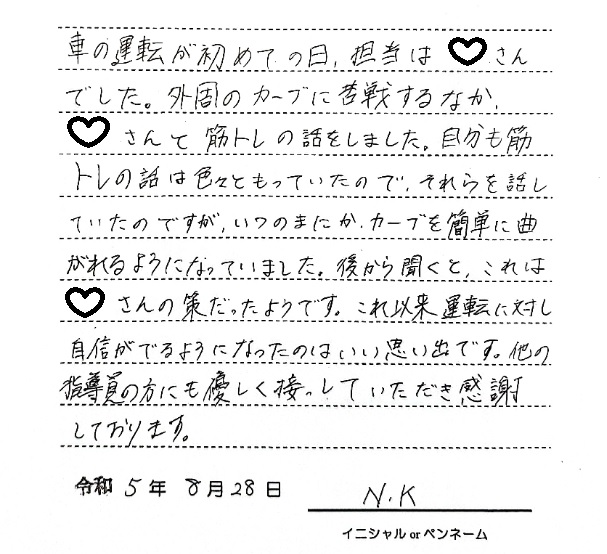 車の運転が初めての日、担当は♡さん
でした。外周のカーブに苦戦するなか、
♡さんと筋トレの話をしました。自分も筋
トレの話は色々ともっていたので、それらを話し
ていたのですが、いつのまにか、カーブを簡単に曲
がれるようになっていました。後から聞くと、これは
♡さんの策だったようです。これ以来運転に対し
自信がでるようになったのはいい思い出です。他の
指導員の方にも優しく接っしていただき感謝
しております。
令和 5年 8月28日 N.K
イニシャル or ペンネーム